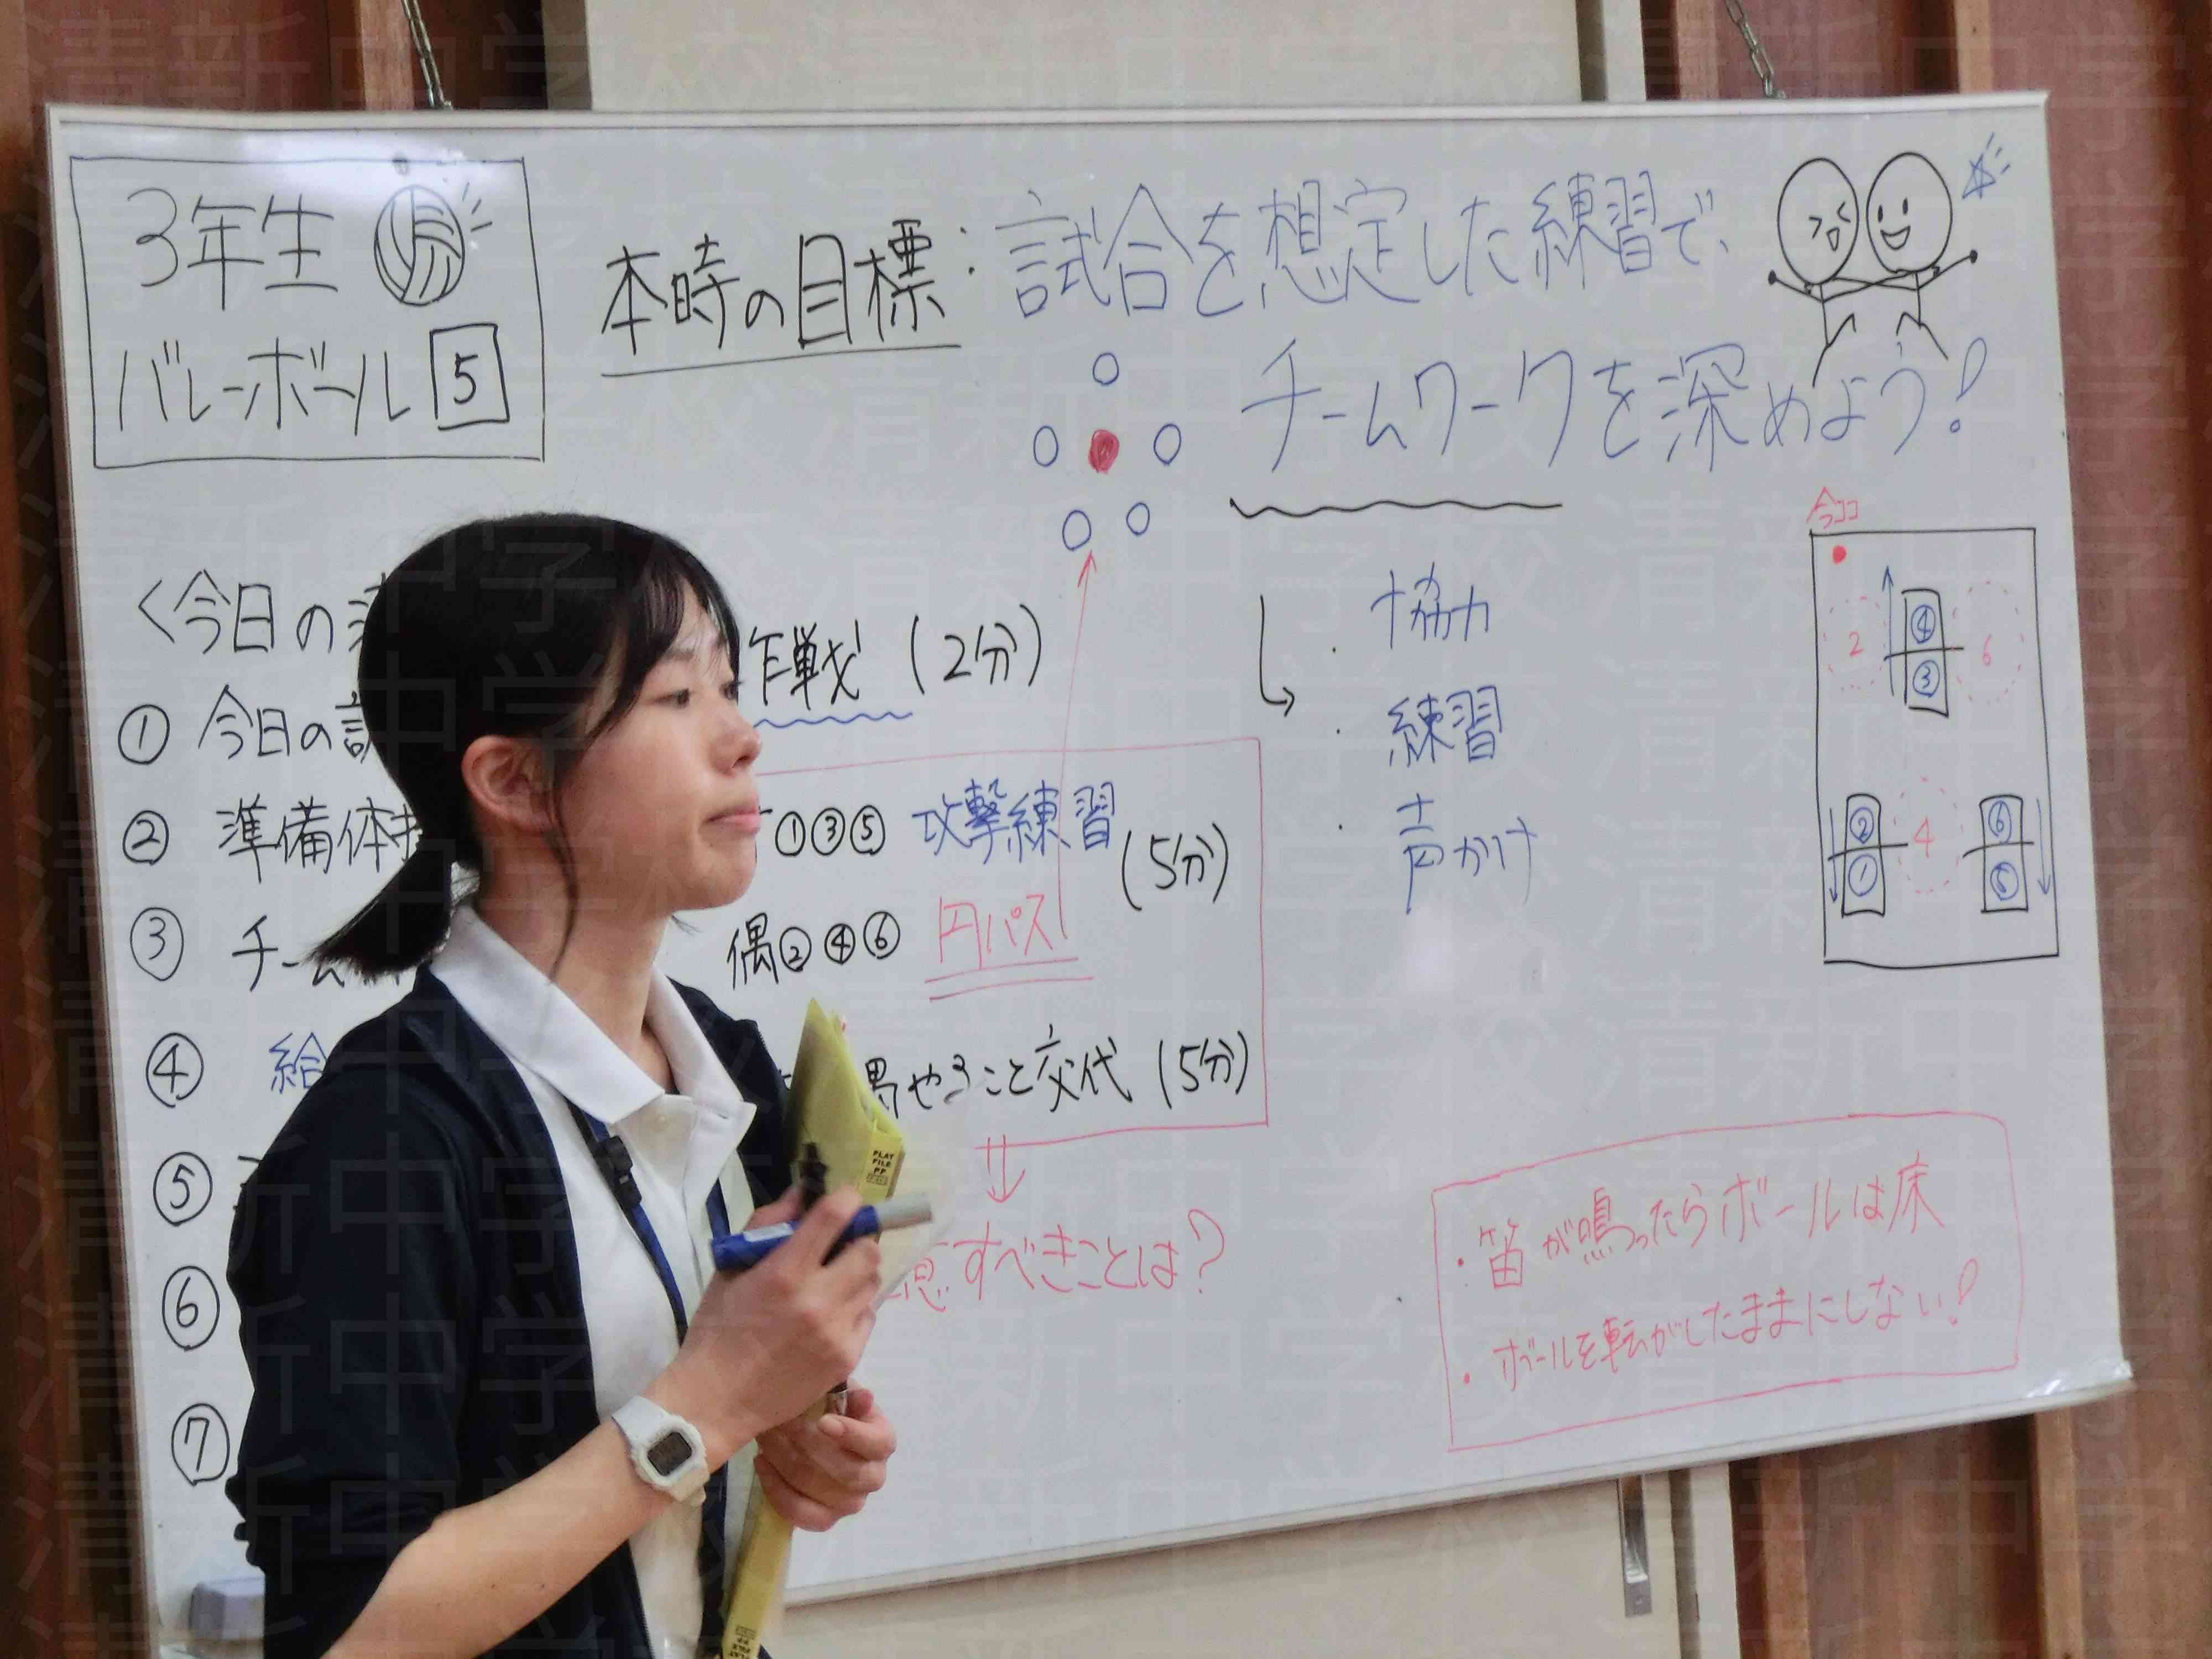 3年生
バレーボール 5
本時の目標：試合を想定した練習で、
チームワークを深めよう！
・協力
・練習
・声かけ
今ココ
2 ④ 6
③
② 4 ⑥
① ⑤
<今日の
① 今日の 作戦 (2分)
② 準備体
①③⑤ 攻撃練習 (5分)
③ チーム
偶②④⑥ 円パス
④ 給
やること交代 (5分)
⑤
⑥
すべきことは？
⑦
・笛が鳴ったらボールは床
・ボールを転がしたままにしない！
FLAT
FILE
PP
清新中学校